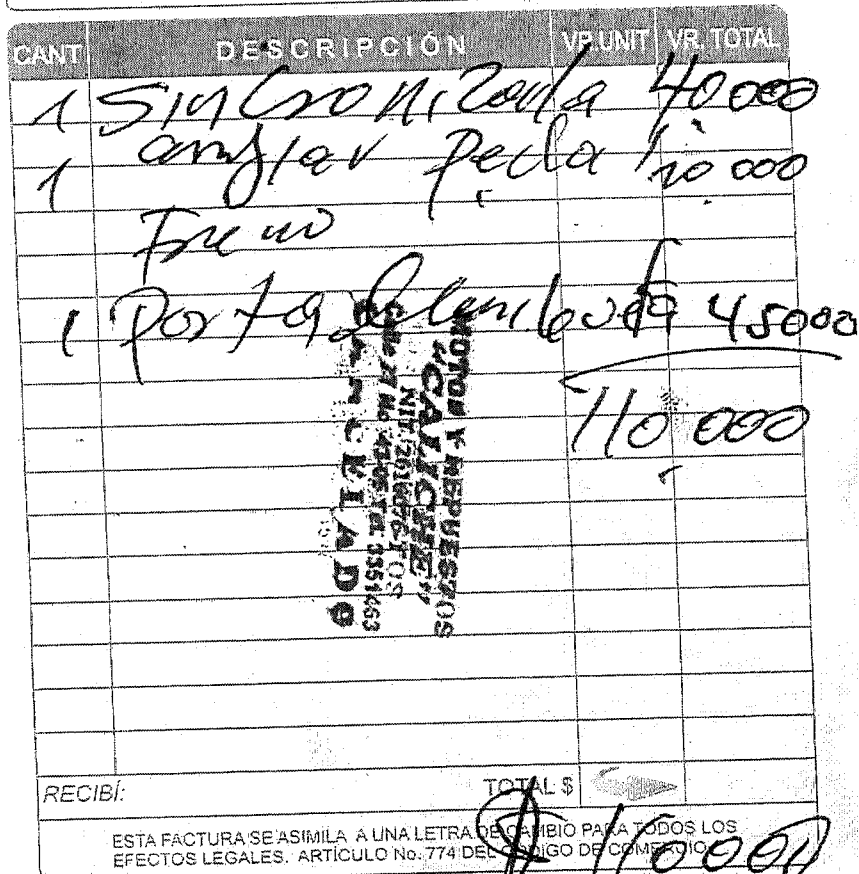 CANT DESCRIPCIÓN VR.UNIT VR. TOTAL
1 Sincronizada 40000
1 Pedal 20 000
Freno
1 Porta 45000
110 000
MOTOS Y REPUESTOS
"CALICHE"
CANCELADO
RECIBÍ: TOTAL $
$ 110000
ESTA FACTURA SE ASIMILA A UNA LETRA DE CAMBIO PARA TODOS LOS
EFECTOS LEGALES. ARTÍCULO No. 774 DEL CÓDIGO DE COMERCIO.